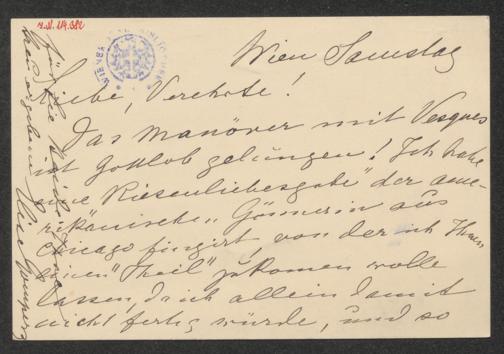 Wien Samstag
Liebe, Verehrte!
Das Manöver mit Vesques
ist Gottlob gelungen! Ich habe
eine "Riesenliebesgabe" der ame-
rikanischen Gönnerin aus
Chicago fingirt von der ich Ihnen
einen "Theil" zukomen wolle
lassen, da ich allein damit
nicht fertig würde, und so
für die
Elise Gomperz